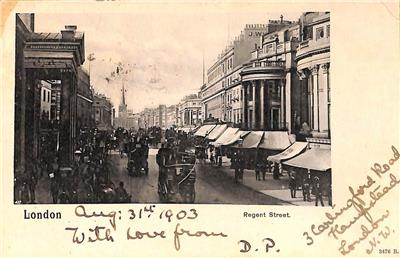 London
Aug: 31st 1903
Regent Street.
With love from
D.P.
3 Carlingford Road
Hampstead
London
N.W.
J.W.
2476 B.